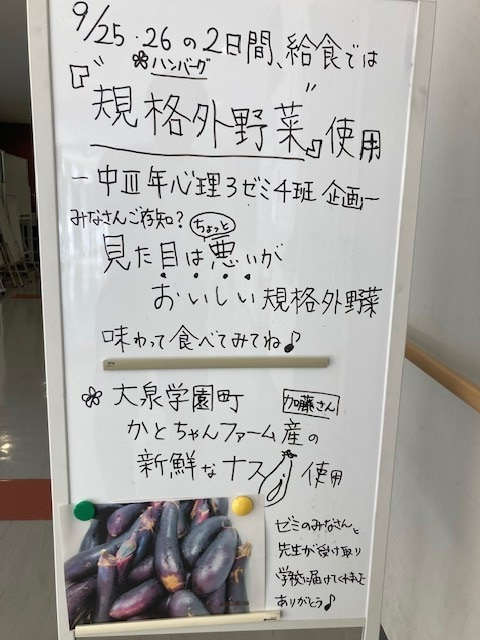 9/25・26の2日間、給食では
❀ハンバーグ
『"規格外野菜"』使用
－中Ⅲ年心理3ゼミ4班 企画－
みなさんご存知?
ちょっと
見た目は悪いが
おいしい規格外野菜
味わって食べてみてね♪
❀大泉学園町
加藤さん
かとちゃんファーム産の
新鮮なナス 使用
ゼミのみなさんと
先生が受け取り
学校に届けてくれました
ありがとう♪